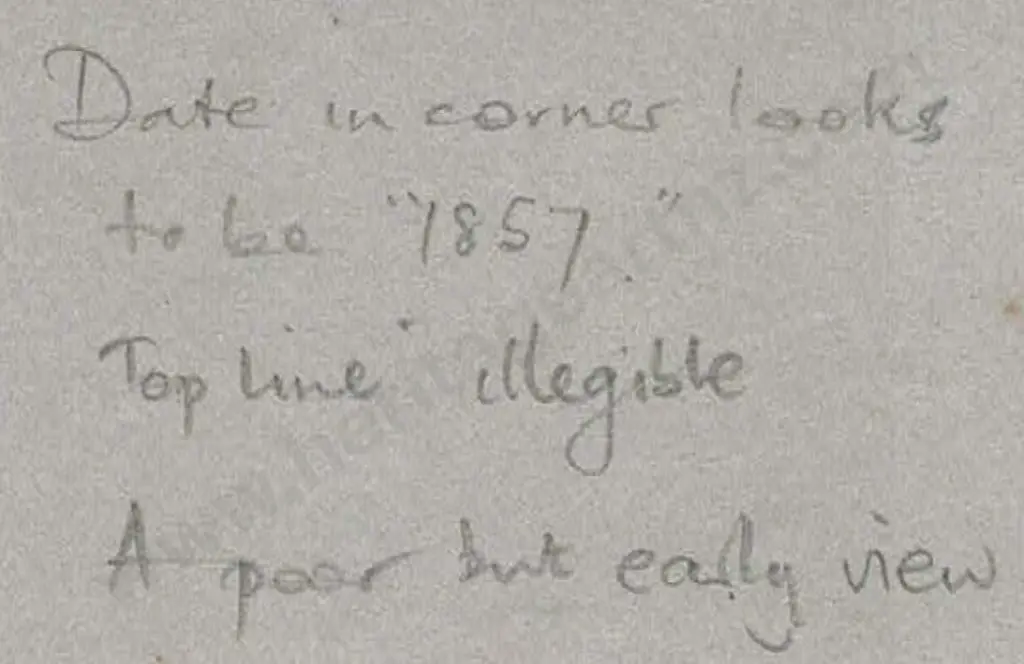 Date in corner looks
to be "1857."
Top line illegible
A poor but early view